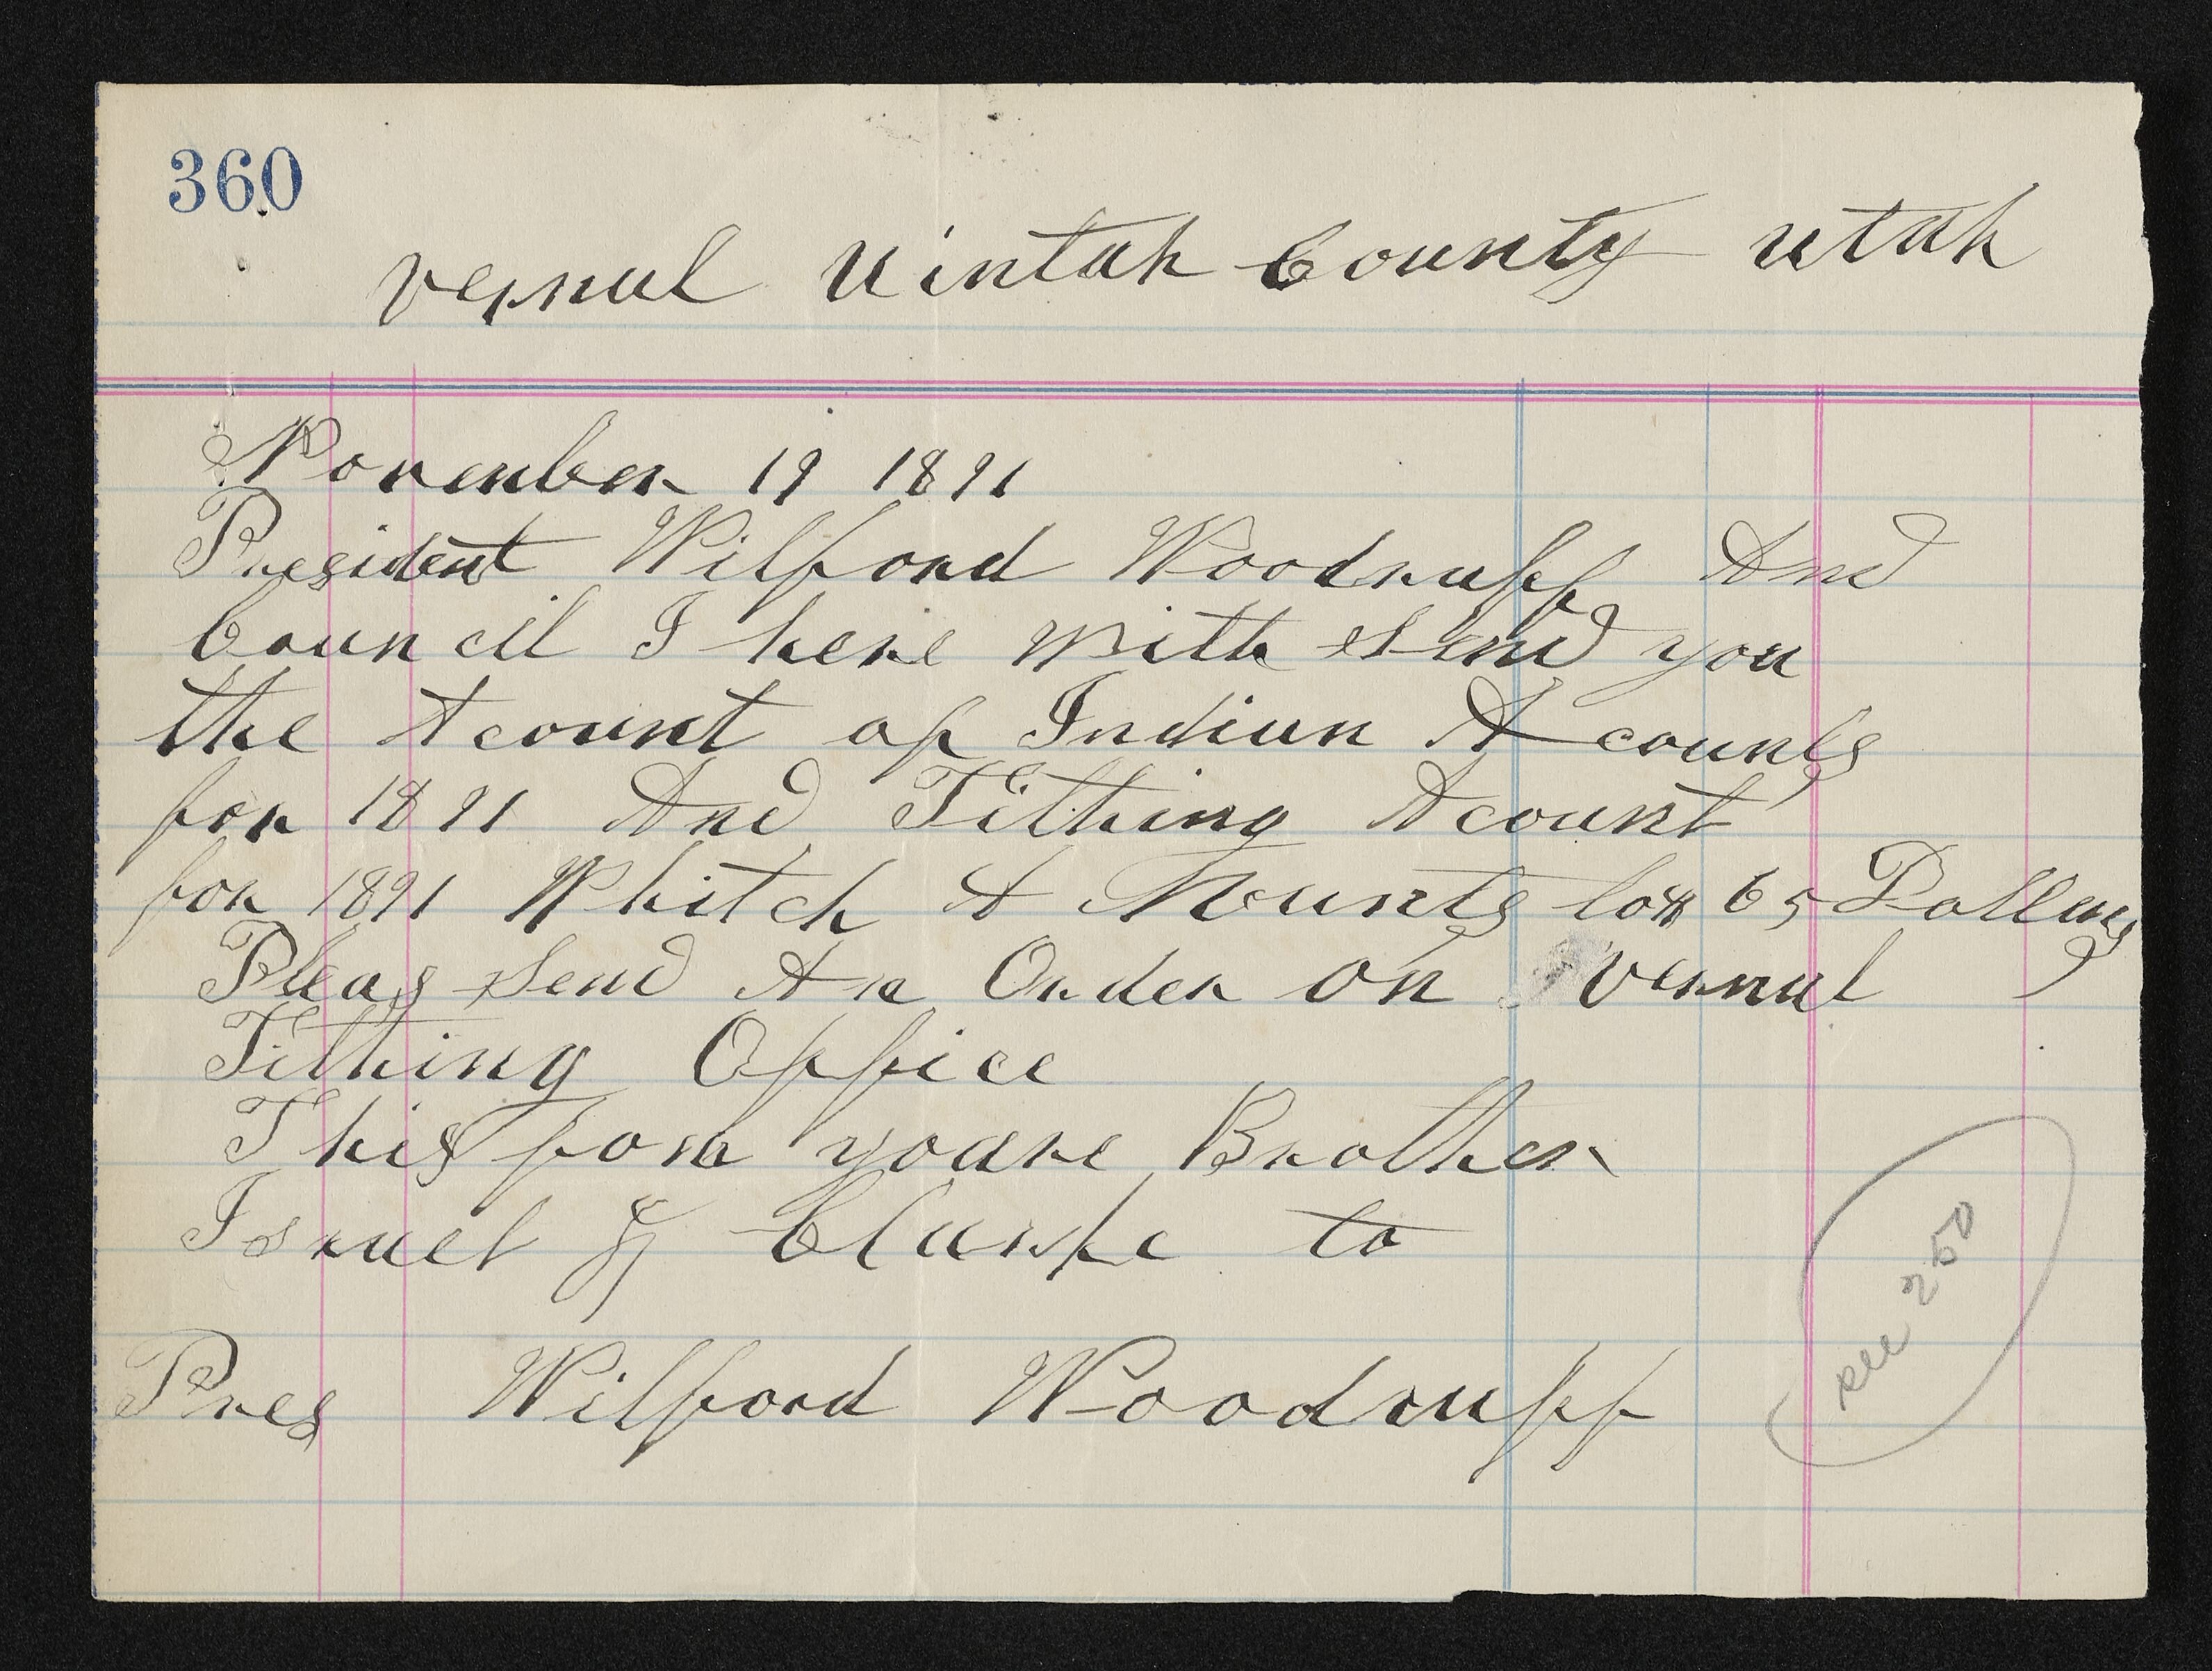 360
vernal Uintah County utah
November 19 1891
President Wilford Woodruff And
Council I here With Send you
the Acount of Indian Acounts
for 1891 And Tithing Acount
for 1891 Whitch A Mounts 65 Dollars
Pleas Send An Order on Vernal
Tithing Office
This for youre Brother
Israel J Clarke to
Pres Wilford Woodruff
see 250